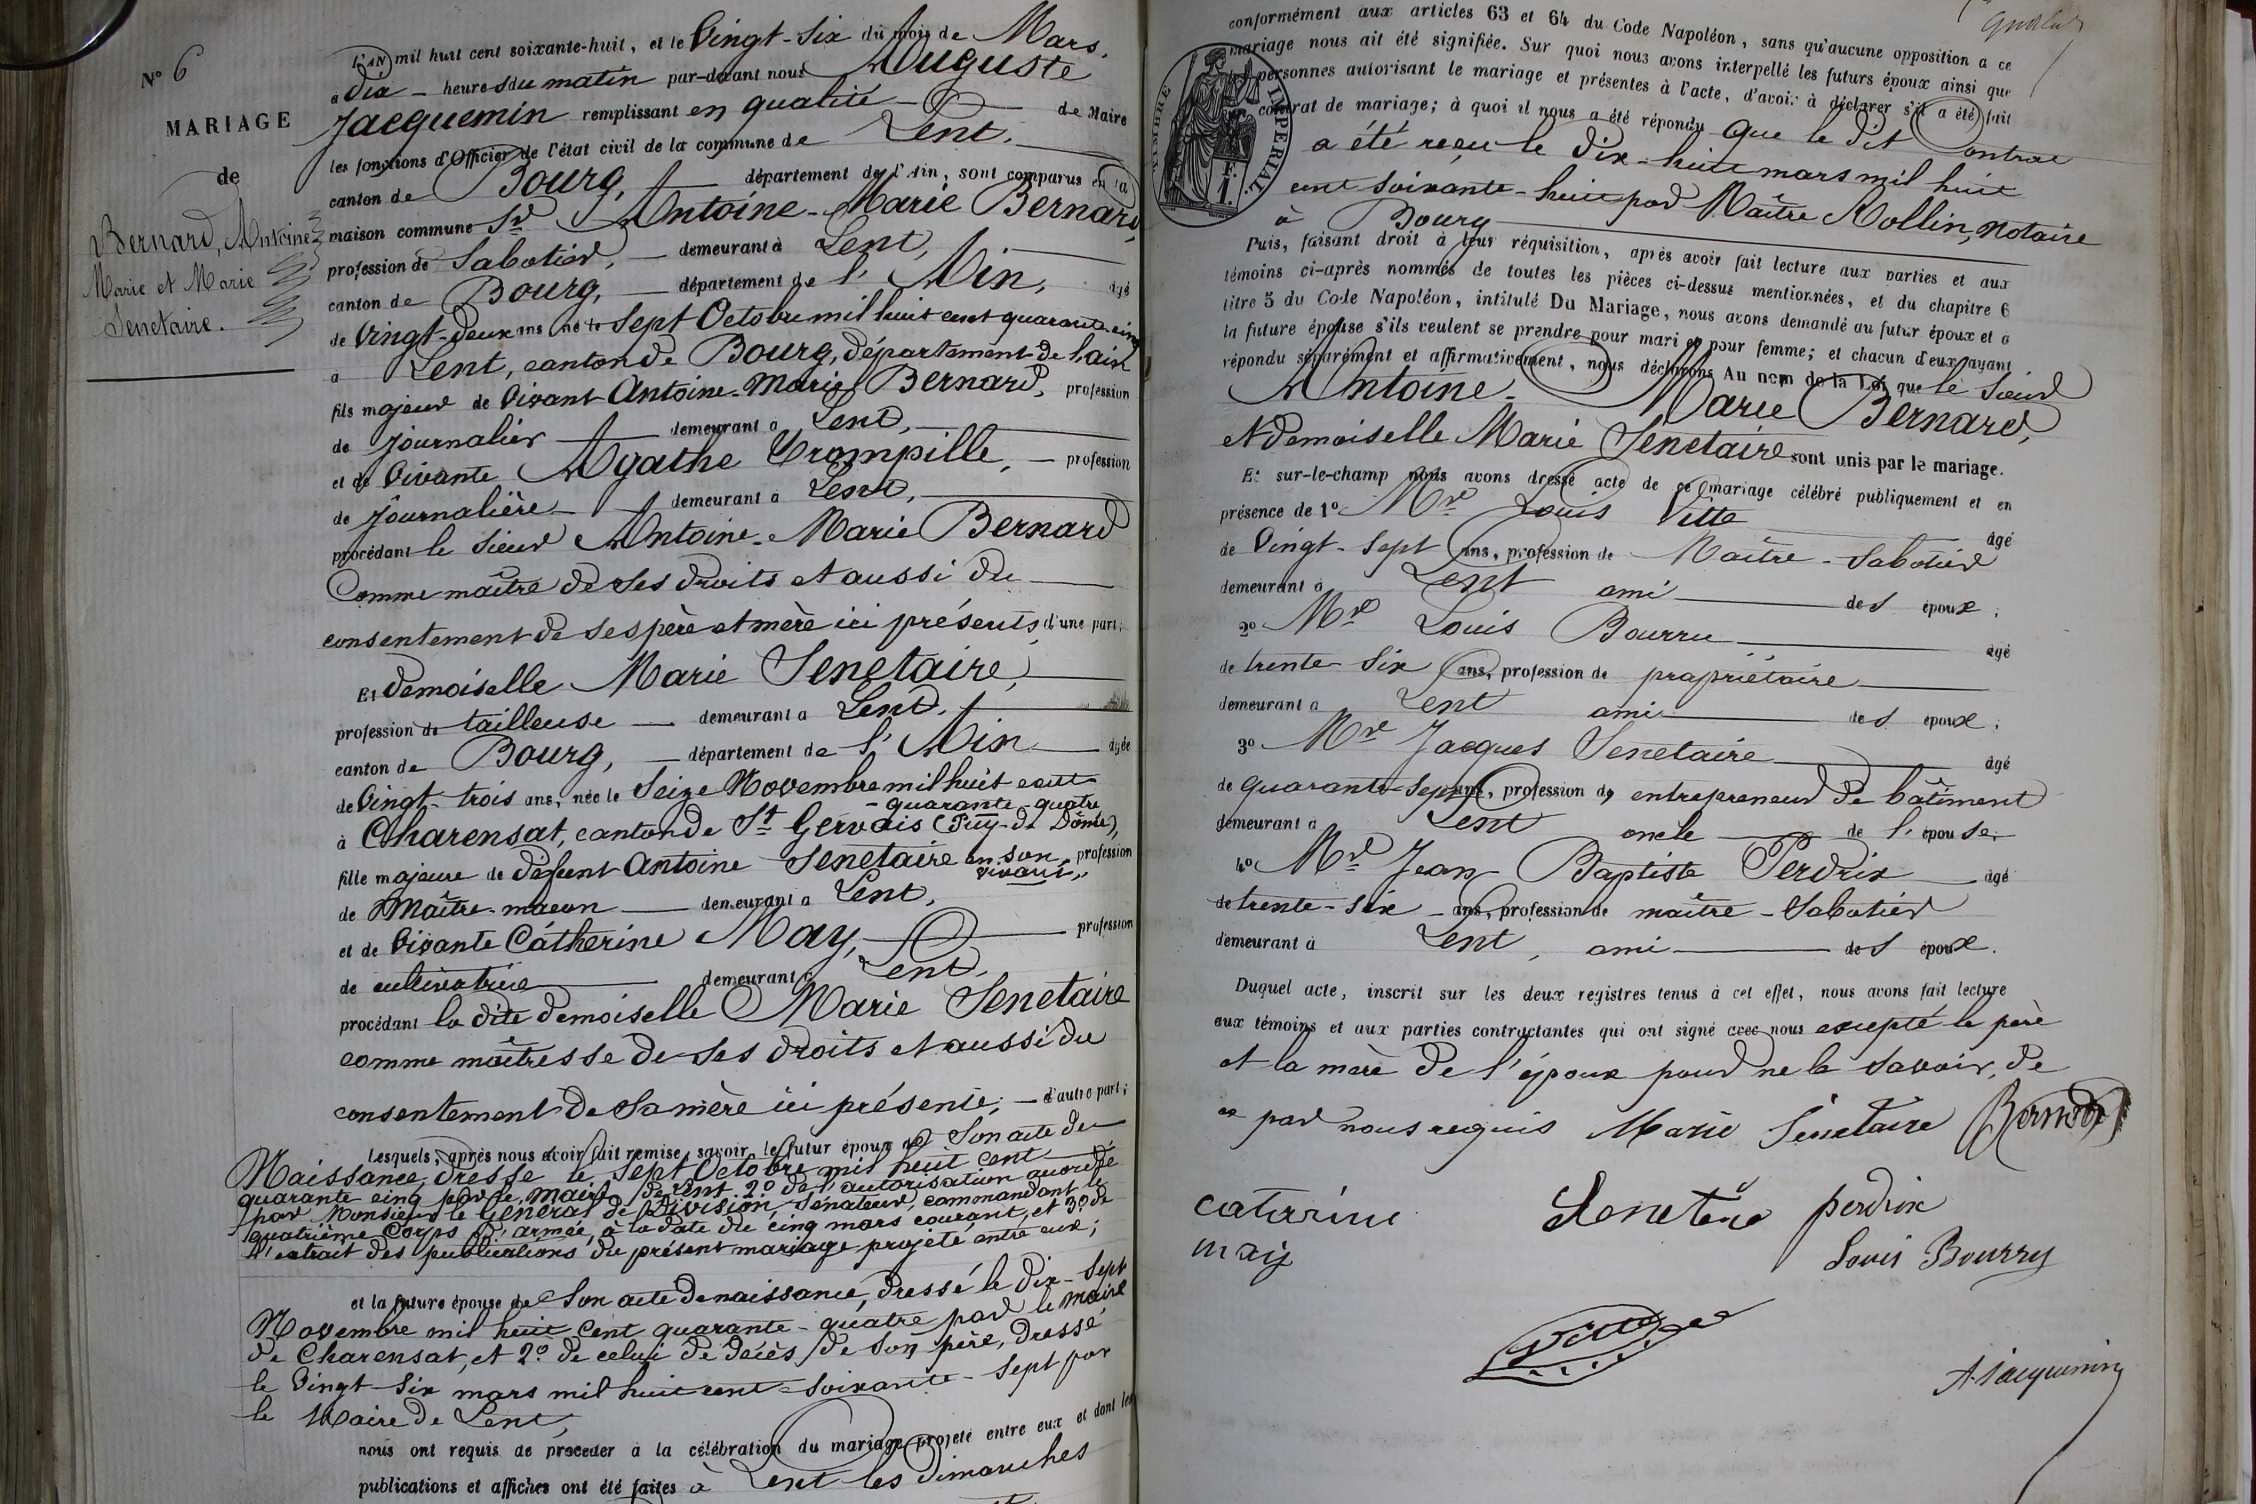 N° 6
MARIAGE
de
Bernard, Antoine
Marie et Marie
Senetaire.
L'AN mil huit cent soixante-huit, et le Vingt-Six du mois de Mars,
à Dix - heures du matin par-devant nous Auguste
Jacquemin remplissant en qualité de Maire
les fonctions d'Officier de l'état civil de la commune de Lent,
canton de Bourg, département de l'Ain, sont comparus en la
maison commune Sr Antoine-Marie Bernard,
profession de Sabotier, demeurant à Lent,
canton de Bourg, département de l'Ain, âgé
de Vingt-deux ans né le Sept Octobre mil huit cent quarante-cinq
à Lent, canton de Bourg, département de l'ain
fils majeur de Vivant Antoine-Marie Bernard, profession
de journalier demeurant à Lent,
et de Vivante Agathe Trompille, profession
de journalière demeurant à Lent,
procédant le Sieur Antoine-Marie Bernard
Comme maître de ses droits et aussi du
consentement de ses père et mère ici présents, d'une part;
Et demoiselle Marie Senetaire,
profession de tailleuse demeurant à Lent,
canton de Bourg, département de l'Ain âgée
de Vingt-trois ans, née le Seize Novembre mil huit cent
- quarante-quatre
à Charensat, canton de St Gervais (Puy-de Dôme),
fille majeure de défunt Antoine Senetaire en son vivant, profession
de Maître-maçon demeurant à Lent,
et de Vivante Catherine May, profession
de cultivatrice demeurant à Lent,
procédant la dite demoiselle Marie Senetaire
comme maîtresse de ses droits et aussi du
consentement de sa mère ici présente; d'autre part;
Lesquels, après nous avoir fait remise, savoir, le futur époux de Son acte de
Naissance, dressé le Sept Octobre mil huit cent
quarante cinq par le maire de Lent 2° de l'autorisation accordée
par Monsieur le Général de Division, Sénateur, commandant le
quatrième Corps d'armée, à la date du cinq mars courant, et 3° de
l'extrait des publications du présent mariage projeté entre eux;
et la future épouse de Son acte de naissance, dressé le Dix-Sept
Novembre mil huit cent quarante-quatre par le maire
de Charensat, et 2° de celui de décès de son père, dressé
le Vingt-Six mars mil huit cent soixante-sept par
le Maire de Lent,
nous ont requis de procéder à la célébration du mariage projeté entre eux et dont les
publications et affiches ont été faites à Lent les dimanches
conformément aux articles 63 et 64 du Code Napoléon, sans qu'aucune opposition à ce
mariage nous ait été signifiée. Sur quoi nous avons interpellé les futurs époux ainsi que
personnes autorisant le mariage et présentes à l'acte, d'avoir à déclarer s'il a été fait
contrat de mariage; à quoi il nous a été répondu que le dit Contrat
a été reçu le Dix-huit mars mil huit
cent soixante-huit par Maître Rollin, notaire
à Bourg
TIMBRE IMPERIAL
1 F.
Puis, faisant droit à leur réquisition, après avoir fait lecture aux parties et aux
témoins ci-après nommés de toutes les pièces ci-dessus mentionnées, et du chapitre 6
titre 5 du Code Napoléon, intitulé Du Mariage, nous avons demandé au futur époux et à
la future épouse s'ils veulent se prendre pour mari et pour femme; et chacun d'eux ayant
répondu séparément et affirmativement, nous déclarons Au nom de la Loi que le Sieur
Antoine-Marie Bernard,
et demoiselle Marie Senetaire sont unis par le mariage.
Et sur-le-champ nous avons dressé acte de ce mariage célébré publiquement et en
présence de 1° Mr Louis Vitte âgé
de Vingt-Sept ans, profession de Maître-Sabotier
demeurant à Lent ami des époux;
2° Mr Louis Bourru âgé
de trente-Six ans, profession de propriétaire
demeurant à Lent ami des époux;
3° Mr Jacques Senetaire âgé
de quarante-Sept ans, profession de entrepreneur de bâtiment
demeurant à Lent oncle de l'épouse;
4° Mr Jean Baptiste Perdrix âgé
de trente-six ans, profession de maître-Sabotier
demeurant à Lent, ami des époux.
Duquel acte, inscrit sur les deux registres tenus à cet effet, nous avons fait lecture
aux témoins et aux parties contractantes qui ont signé avec nous excepté le père
et la mère de l'époux pour ne le savoir, de
ce par nous requis Marie Senetaire Bernard
catarine Senetere perdrix
maiy Louis Bourry
Vitte
A Jacquemin